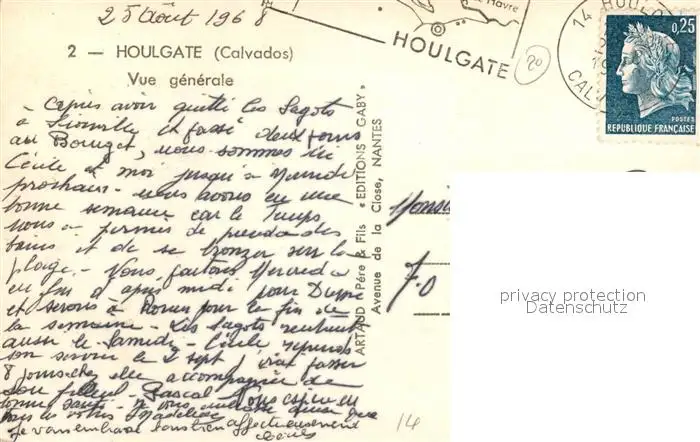 25 Août 1968
14 HOULG
CAL
Le Havre
HOULGATE
20
0,25
POSTES
REPUBLIQUE FRANÇAISE
2 — HOULGATE (Calvados)
Vue générale
- après avoir quitté les Sagots
à et passé deux jours
au Bourget, nous sommes ici
Cécile et moi jusqu'à
prochain - nous avons eu une
bonne semaine car le Temps
nous a permis de prendre des
bains et de se bronzer sur la
plage. - Nous partons
en fin d'après midi pour
et serons à Rouen pour la fin de
la semaine - Les Sagots rentrent
aussi le Samedi - Cécile reprend
son service le 2 sept j'irai passer
8 jours chez elle accompagnée de
son filleul, Pascal - Nous espérons
bonne santé - 
Je vous embrasse tous bien affectueusement
ARTAUD Père & Fils « EDITIONS GABY »
Avenue de la Close, NANTES
Monsi
7.0
14
privacy protection
Datenschutz